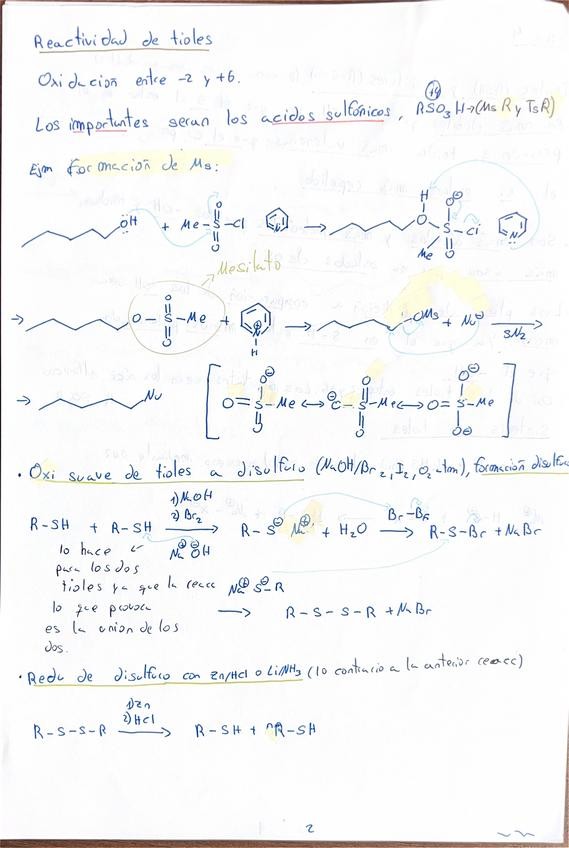 Reactividad de tioles
Oxidación entre -2 y +6.
Los importantes seran los acidos sulfónicos, RSO₃H→(MsR y TsR)
Ejm Formación de Ms:
ÖH + Me-S-Cl → H O S Cl Me
Mesilato
→ O-S-Me + N H → OMs + Nu⊖ SN2 →
→ Nu [O=S-Me ↔ S-Me ↔ O=S-Me]
· Oxi suave de tioles a disulfuro (NaOH/Br₂, I₂, O₂ atm), formación disulfu
1) NaOH
2) Br₂
R-SH + R-SH → R-S⊖ Na⊕ + H₂O Br-Br → R-S-Br + NaBr
lo hace Na⊕ ⊖OH
para los dos
tioles ya que la reacc Na⊕ ⊖S-R
lo que provoca → R-S-S-R + NaBr
es la union de los
dos.
· Redu de disulfuro con Zn/HCl o Li/NH₃ (lo contrario a la anterior reacc)
1) Zn
2) HCl
R-S-S-R → R-SH + R-SH
2